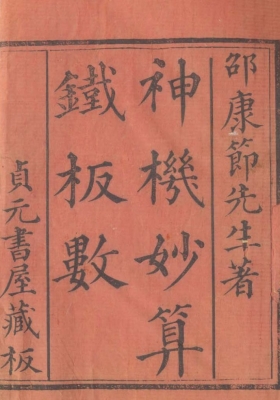 邵康節先生著
神機妙算
鐵板數
貞元書屋藏板